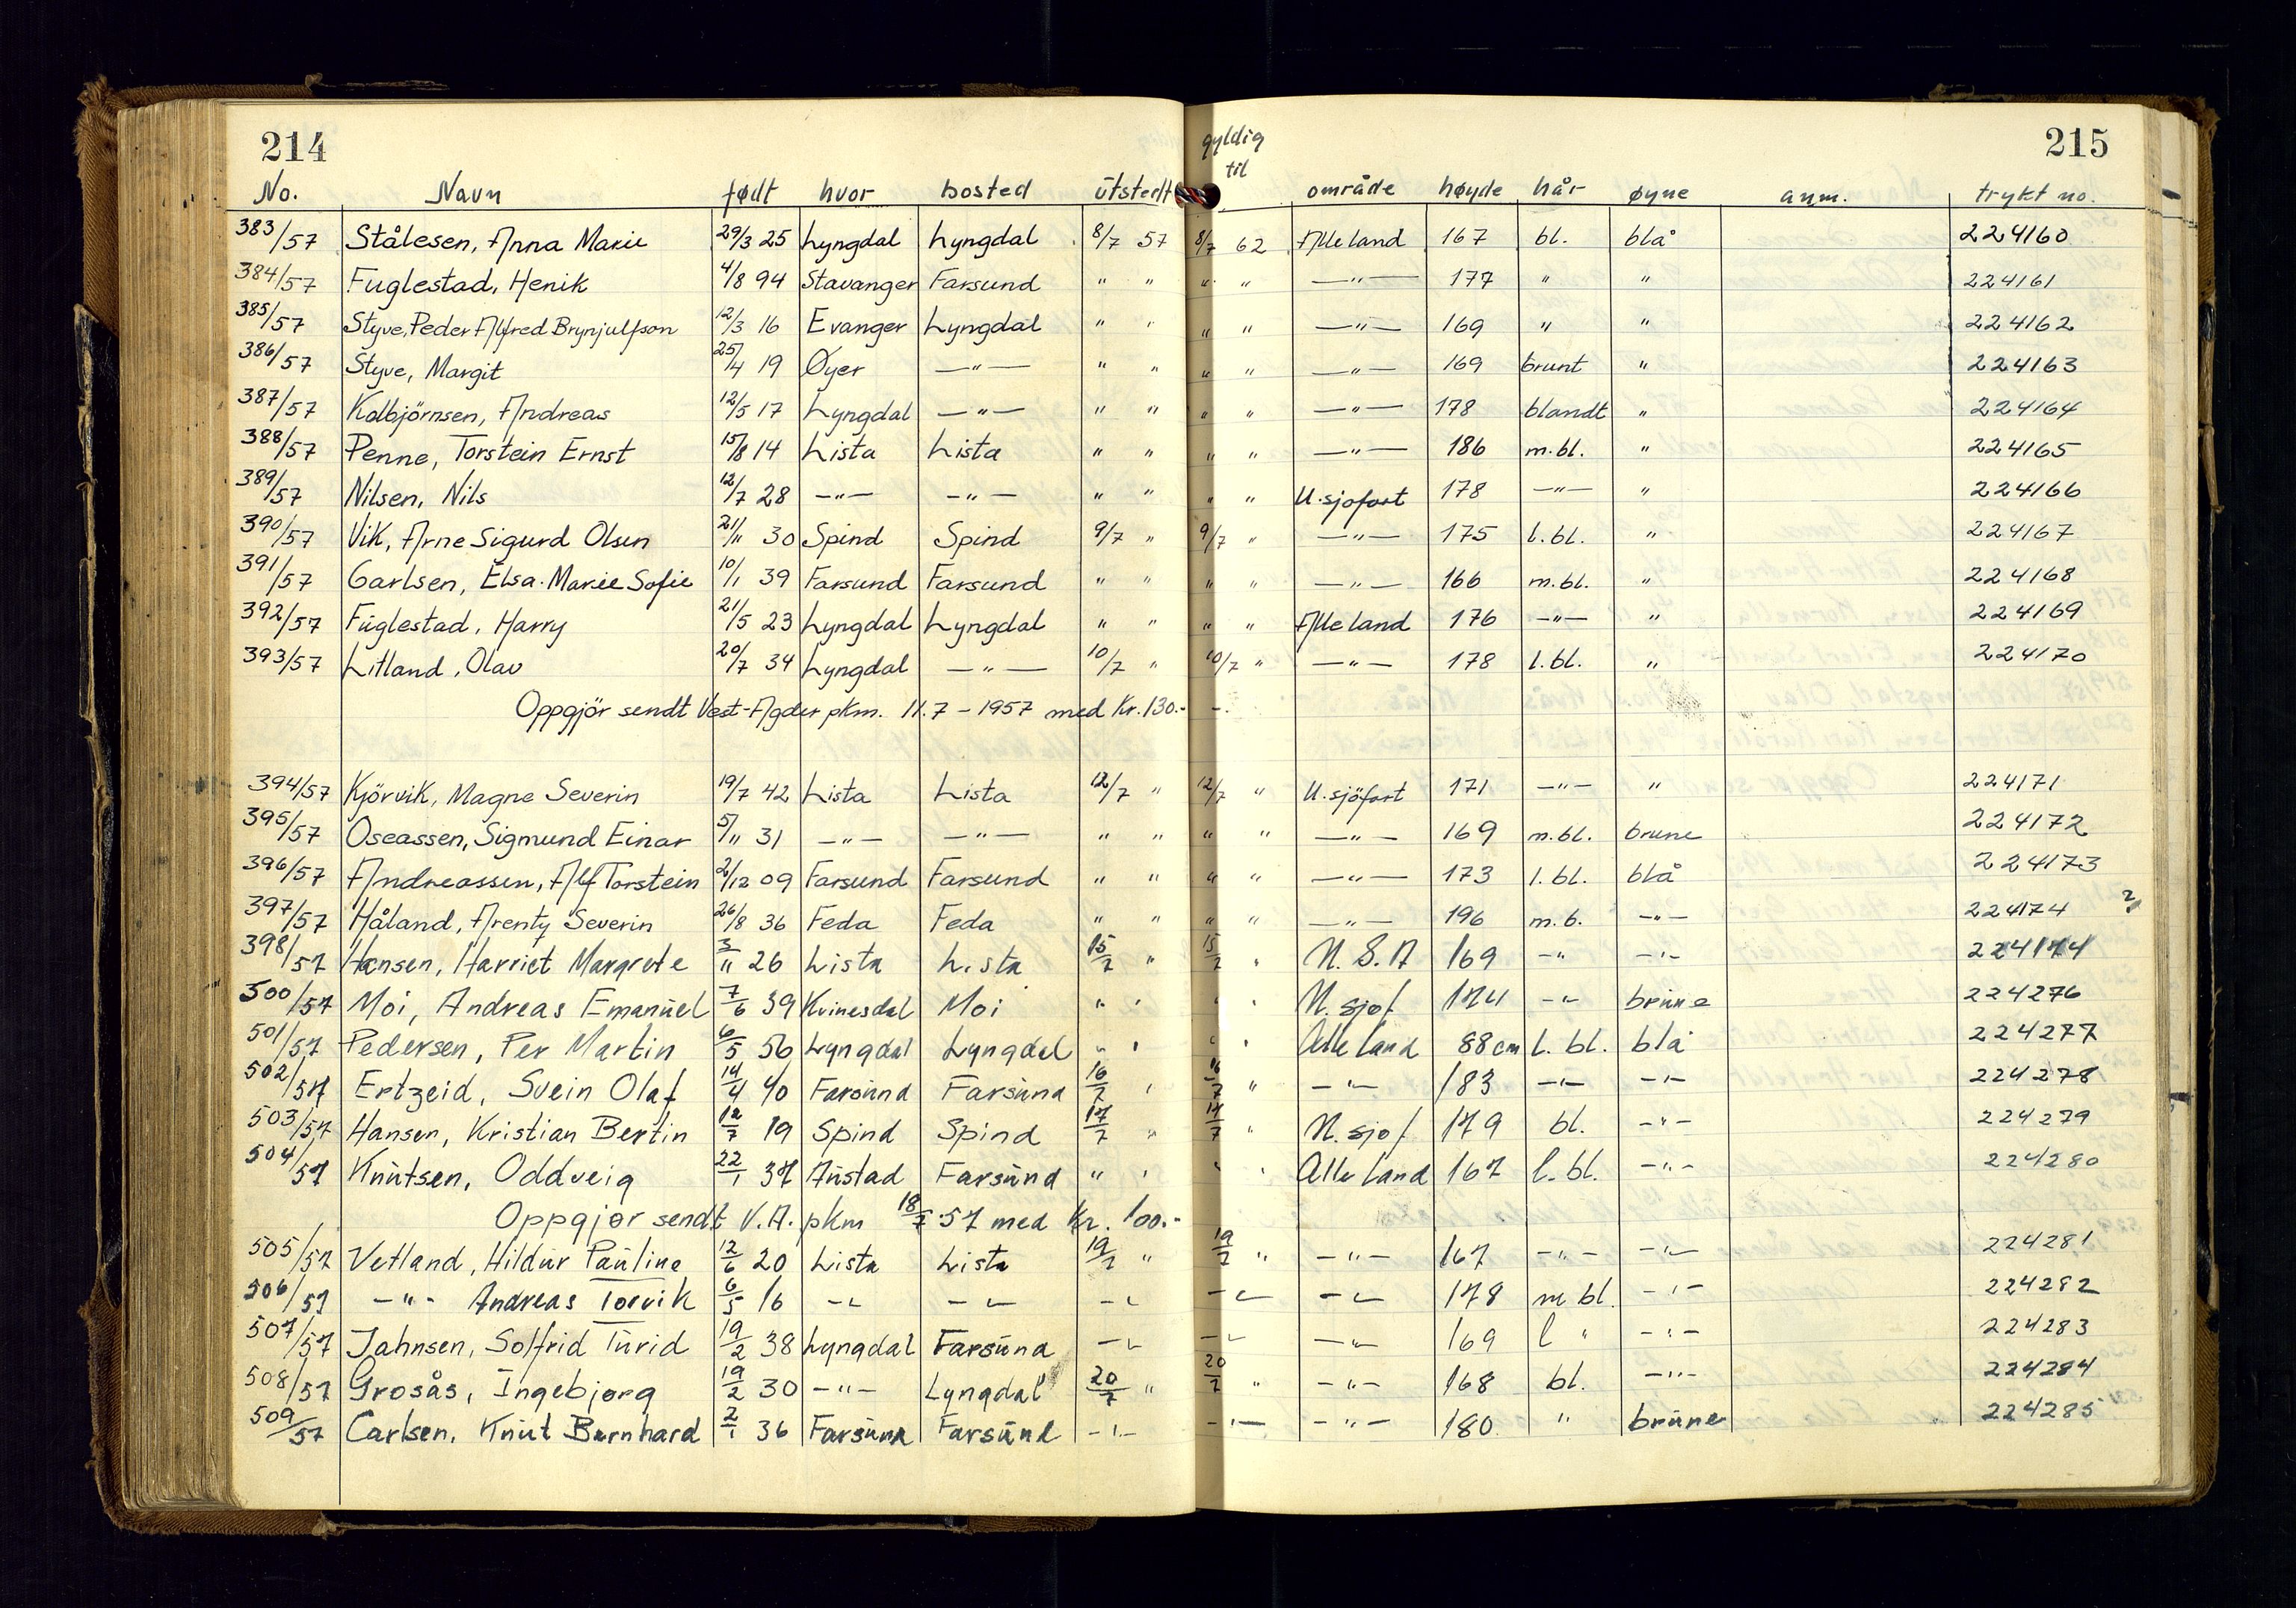 214 215
gyldig
til
No. Navn født hvor bosted ŭtstedt område høyde hår øyne anm. trykt no.
383/57 Stålesen, Anna Marie 29/3 25 Lyngdal Lyngdal 8/7 57 8/7 62 Alle land 167 bl. blå 224160
384/57 Fuglestad, Henik 4/8 94 Stavanger Farsund " " " " —"— 177 " " 224161
385/57 Styve, Peder Alfred Brynjulfson 12/3 16 Evanger Lyngdal " " " " —"— 169 " " 224162
386/57 Styve, Margit 25/4 19 Øyer —"— " " " " —"— 169 brunt " 224163
387/57 Kolbjörnsen, Andreas 12/5 17 Lyngdal —"— " " " " —"— 178 blandt " 224164
388/57 Penne, Torstein Ernst 15/8 14 Lista Lista " " " " —"— 186 m.bl. " 224165
389/57 Nilsen, Nils 12/7 28 —"— —"— " " " " U.sjøfart 178 —"— " 224166
390/57 Vik, Arne Sigurd Olsen 21/11 30 Spind Spind 9/7 " 9/7 " —"— 175 l.bl. " 224167
391/57 Carlsen, Elsa Marie Sofie 10/1 39 Farsund Farsund " " " " —"— 166 m.bl. " 224168
392/57 Fuglestad, Harry 21/5 23 Lyngdal Lyngdal " " " " Alle land 176 —"— " 224169
393/57 Litland, Olav 20/7 34 Lyngdal —"— 10/7 " 10/7 " —"— 178 l.bl. " 224170
Oppgjör sendt Vest-Agder pkm. 11.7 - 1957 med Kr. 130.- -.
394/57 Kjörvik, Magne Severin 19/7 42 Lista Lista 12/7 " 12/7 " U.sjöfart 171 —"— " 224171
395/57 Oseassen, Sigmund Einar 5/11 31 —"— —"— " " " " —"— 169 m.bl. brune 224172
396/57 Andreassen, Alf Torstein 2/12 09 Farsund Farsund " " " " —"— 173 l.bl. blå 224173
397/57 Håland, Arenty Severin 26/8 36 Feda Feda " " " " —"— 196 m.b. —"— 224174 ?
398/57 Hansen, Harriet Margrete 3/11 26 Lista Lista 15/7 " 15/7 " U.S.A 169 —" —"— 224174
500/57 Moi, Andreas Emanŭel 7/6 39 Kvinesdal Moi " " " " U.sjøf 174 —"— brŭne 224276
501/57 Pedersen, Per Martin 6/5 56 Lyngdal Lyngdal " " " " Alle land 88cm l.bl. blå 224277
502/57 Ertzeid, Svein Olaf 14/4 40 Farsŭnd Farsŭnd 16/7 " 16/7 " —"— 183 —"— —"— 224278
503/57 Hansen, Kristian Bertin 12/7 19 Spind Spind 17/7 " 17/7 " U.sjøf 179 bl. —"— 224279
504/57 Knŭtsen, Oddveig 22/1 37 Aŭstad Farsŭnd " " " " Alle land 167 l.bl. —"— 224280
Oppgjør sendt V.A. pkm 18/7 57 med Kr. 100.-
505/57 Vetland, Hildŭr Paŭline 12/6 20 Lista Lista 19/7 " 19/7 " —"— 167 —"— —"— 224281
506/57 —"— Andreas Torvik 6/5 16 —"— —"— —"— —"— —"— 178 m bl. —"— 224282
507/57 Jahnsen, Solfrid Tŭrid 19/2 38 Lyngdal Farsŭnd —"— —"— —"— 169 l " —"— 224283
508/57 Grosås, Ingebjørg 19/2 30 —"— Lyngdal 20/7 " 20/7 " —"— 168 bl. —"— 224284
509/57 Carlsen, Knŭt Bernhard 2/1 36 Farsŭnd Farsŭnd —"— —"— —"— 180 " brŭne 224285